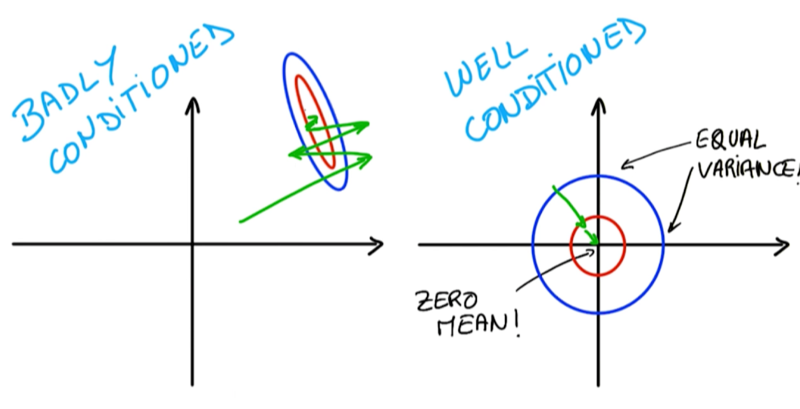 BADLY
CONDiTiONED
WELL
CONDiTiONED
EQUAL
VARiANCE!
ZERO
MEAN!